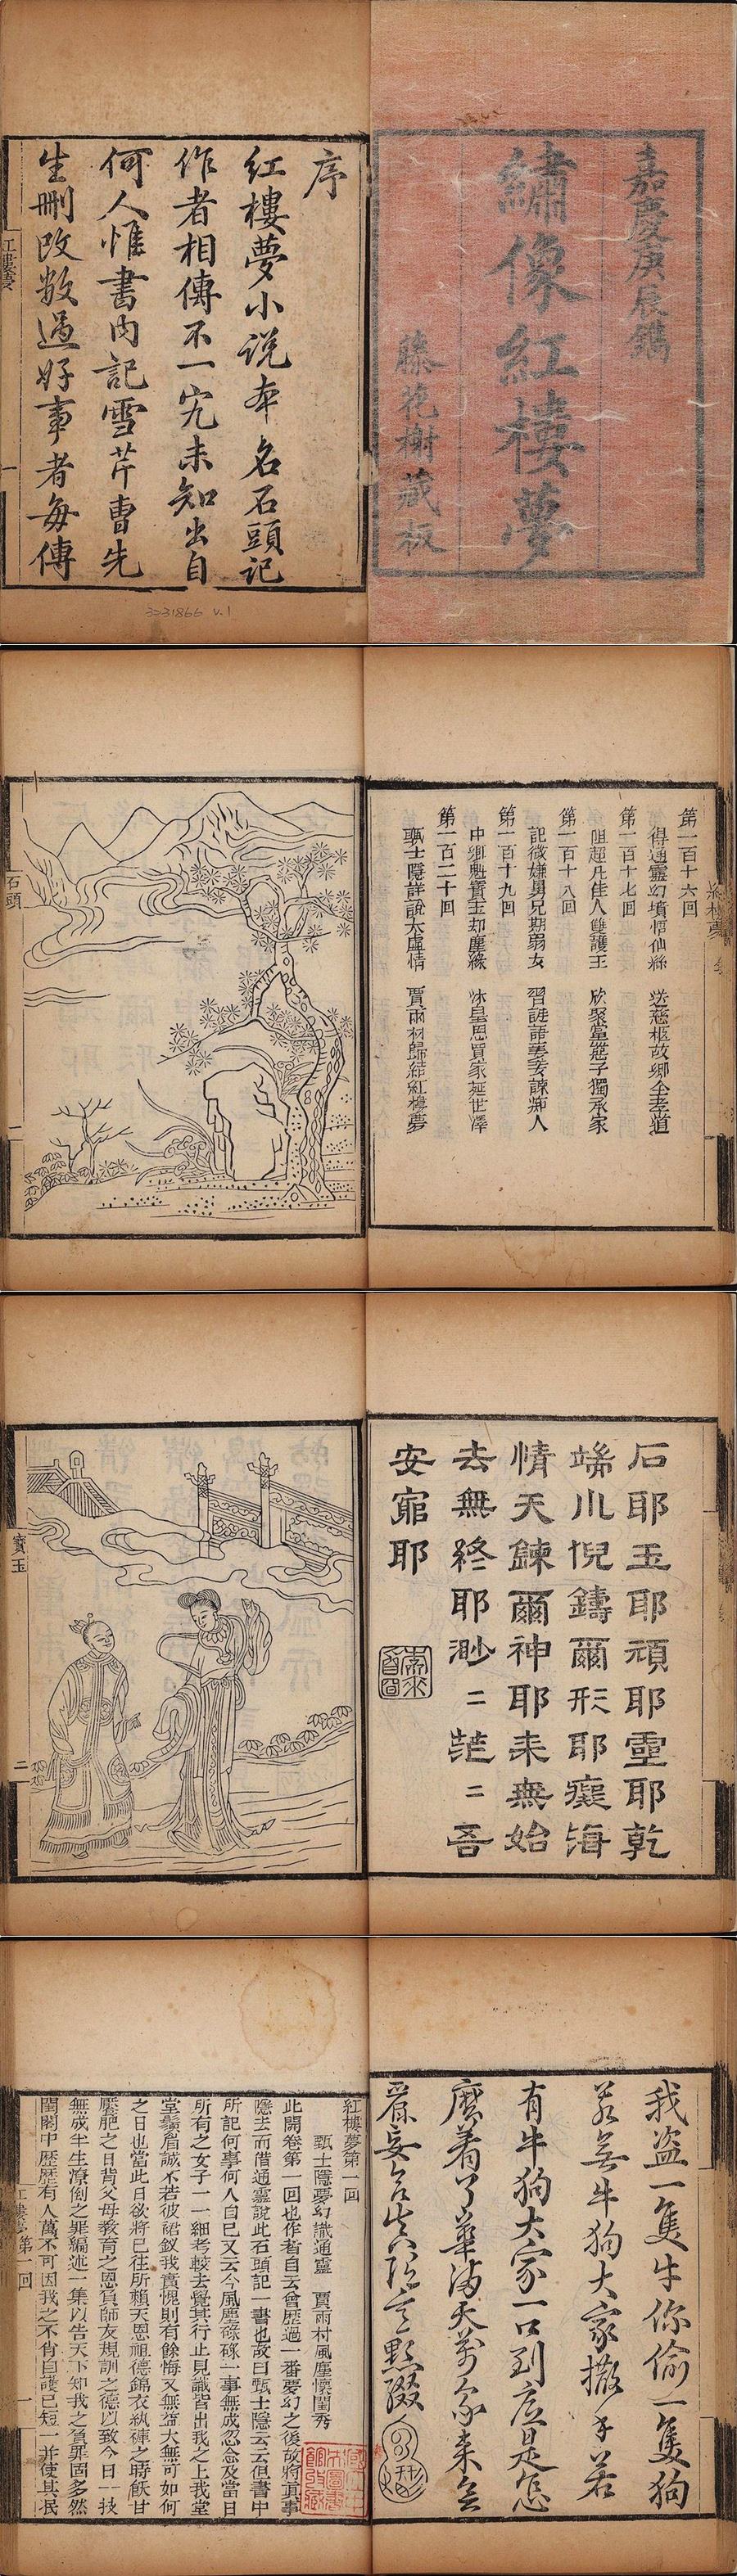 嘉慶庚辰鐫
繡像紅樓夢
藤花榭藏板
序
紅樓夢小說本名石頭記
作者相傳不一究未知出自
何人惟書內記雪芹曹先
生刪改數過好事者每傳
紅樓夢
3231866 v.1
紅樓夢
第一百十六回
得通靈幻境悟仙緣 送慈柩故鄉全孝道
第一百十七回
阻超凡佳人雙護玉 欣聚黨惡子獨承家
第一百十八回
記微嫌舅兄欺弱女 驚謎語妻妾諫痴人
第一百十九回
中鄉魁寶玉却塵緣 沐皇恩賈家延世澤
第一百二十回
甄士隱詳說太虛情 賈雨村歸結紅樓夢
石頭
一
石耶玉耶頑耶靈耶乾
端儿倪鑄爾形耶癡海
情天錬爾神耶来無始
去無終耶渺二茫二吾
安窮耶
寶玉
二
我盜一隻牛你偷一隻狗
若無牛狗大家撒手若
有牛狗大家一口到底是怎
麼着了
紅樓夢第一回
甄士隱夢幻識通靈 賈雨村風塵懷閨秀
此開卷第一回也作者自云曾歷過一番夢幻之後故將真事
隱去而借通靈說此石頭記一書也故曰甄士隱云云但書中
所記何事何人自己又云今風塵碌碌一事無成忽念及當日
所有之女子一一細考較去覺其行止見識皆出我之上我堂
堂鬚眉誠不若彼裙釵我實愧則有餘悔又無益大無可如何
之日也當此日欲將已往所賴天恩祖德錦衣紈褲之時飫甘
饜肥之日背父母教育之恩負師友規訓之德以致今日一技
無成半生潦倒之罪編述一集以告天下知我之負罪固多然
閨閣中歷歷有人萬不可因我之不肖自護己短一并使其泯
紅樓夢 第一回
一